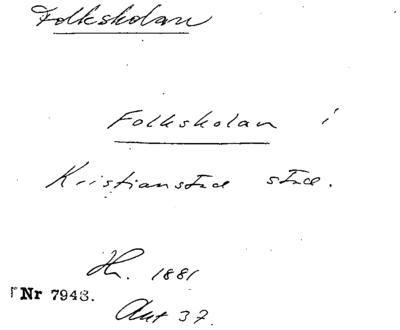 Folkskolan
Folkskolan i
Kristianstad stad.
Hr. 1881
Nr 7943.
Ant 37.